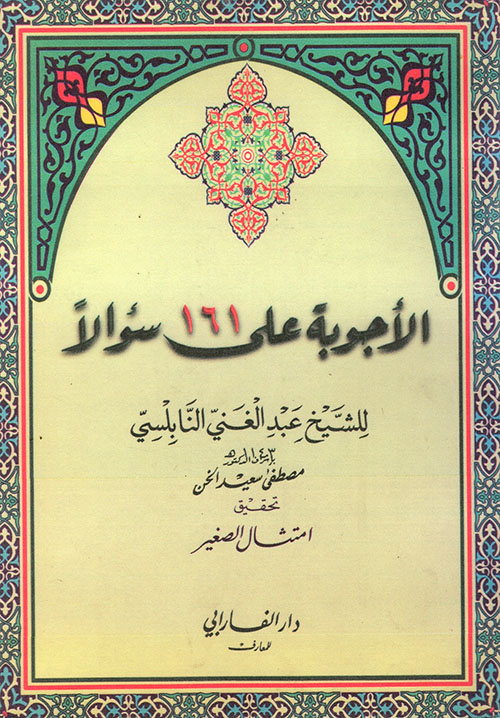 الأجوبة على ١٦١ سؤالاً
للشَّيْخ عَبْدِ الْغَنِيّ النَّابِلْسِيّ
بإشراف الدكتور
مصطفى سعيد الخن
تحقيق
امتثال الصغير
دار الفارابي
للمعارف